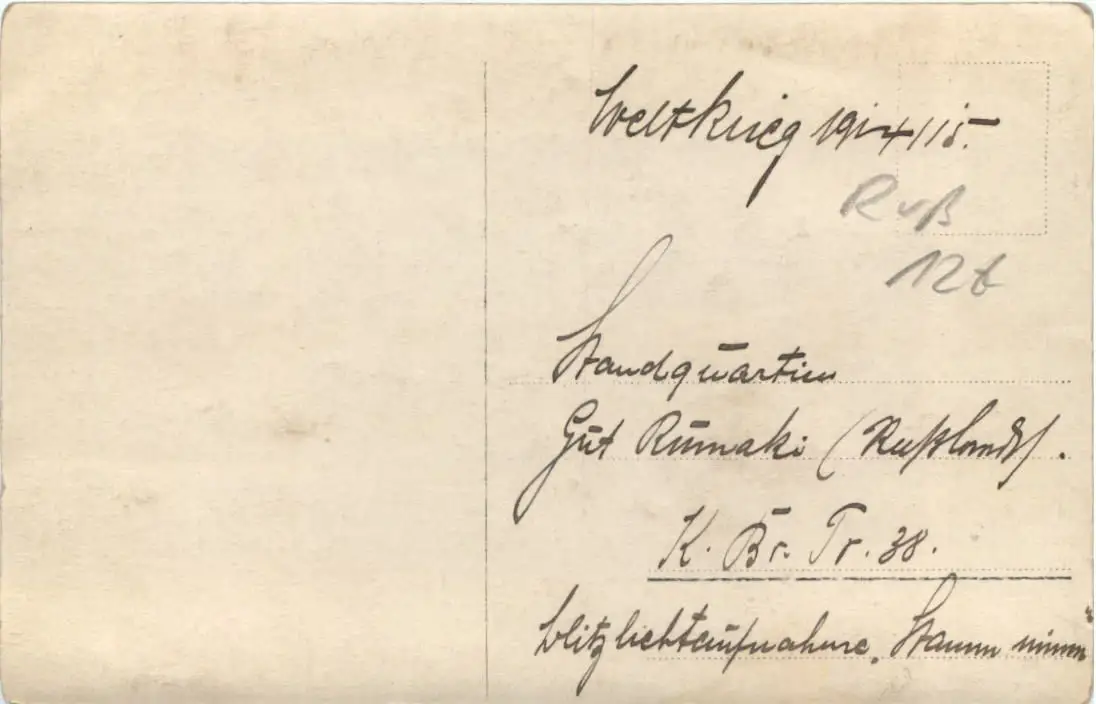 Weltkrieg 1914/15.
Ruß
12t
Standquartier
Gut Rumaki (Rußland).
K. Br. Tr. 38.
Blitzlichtaufnahme.